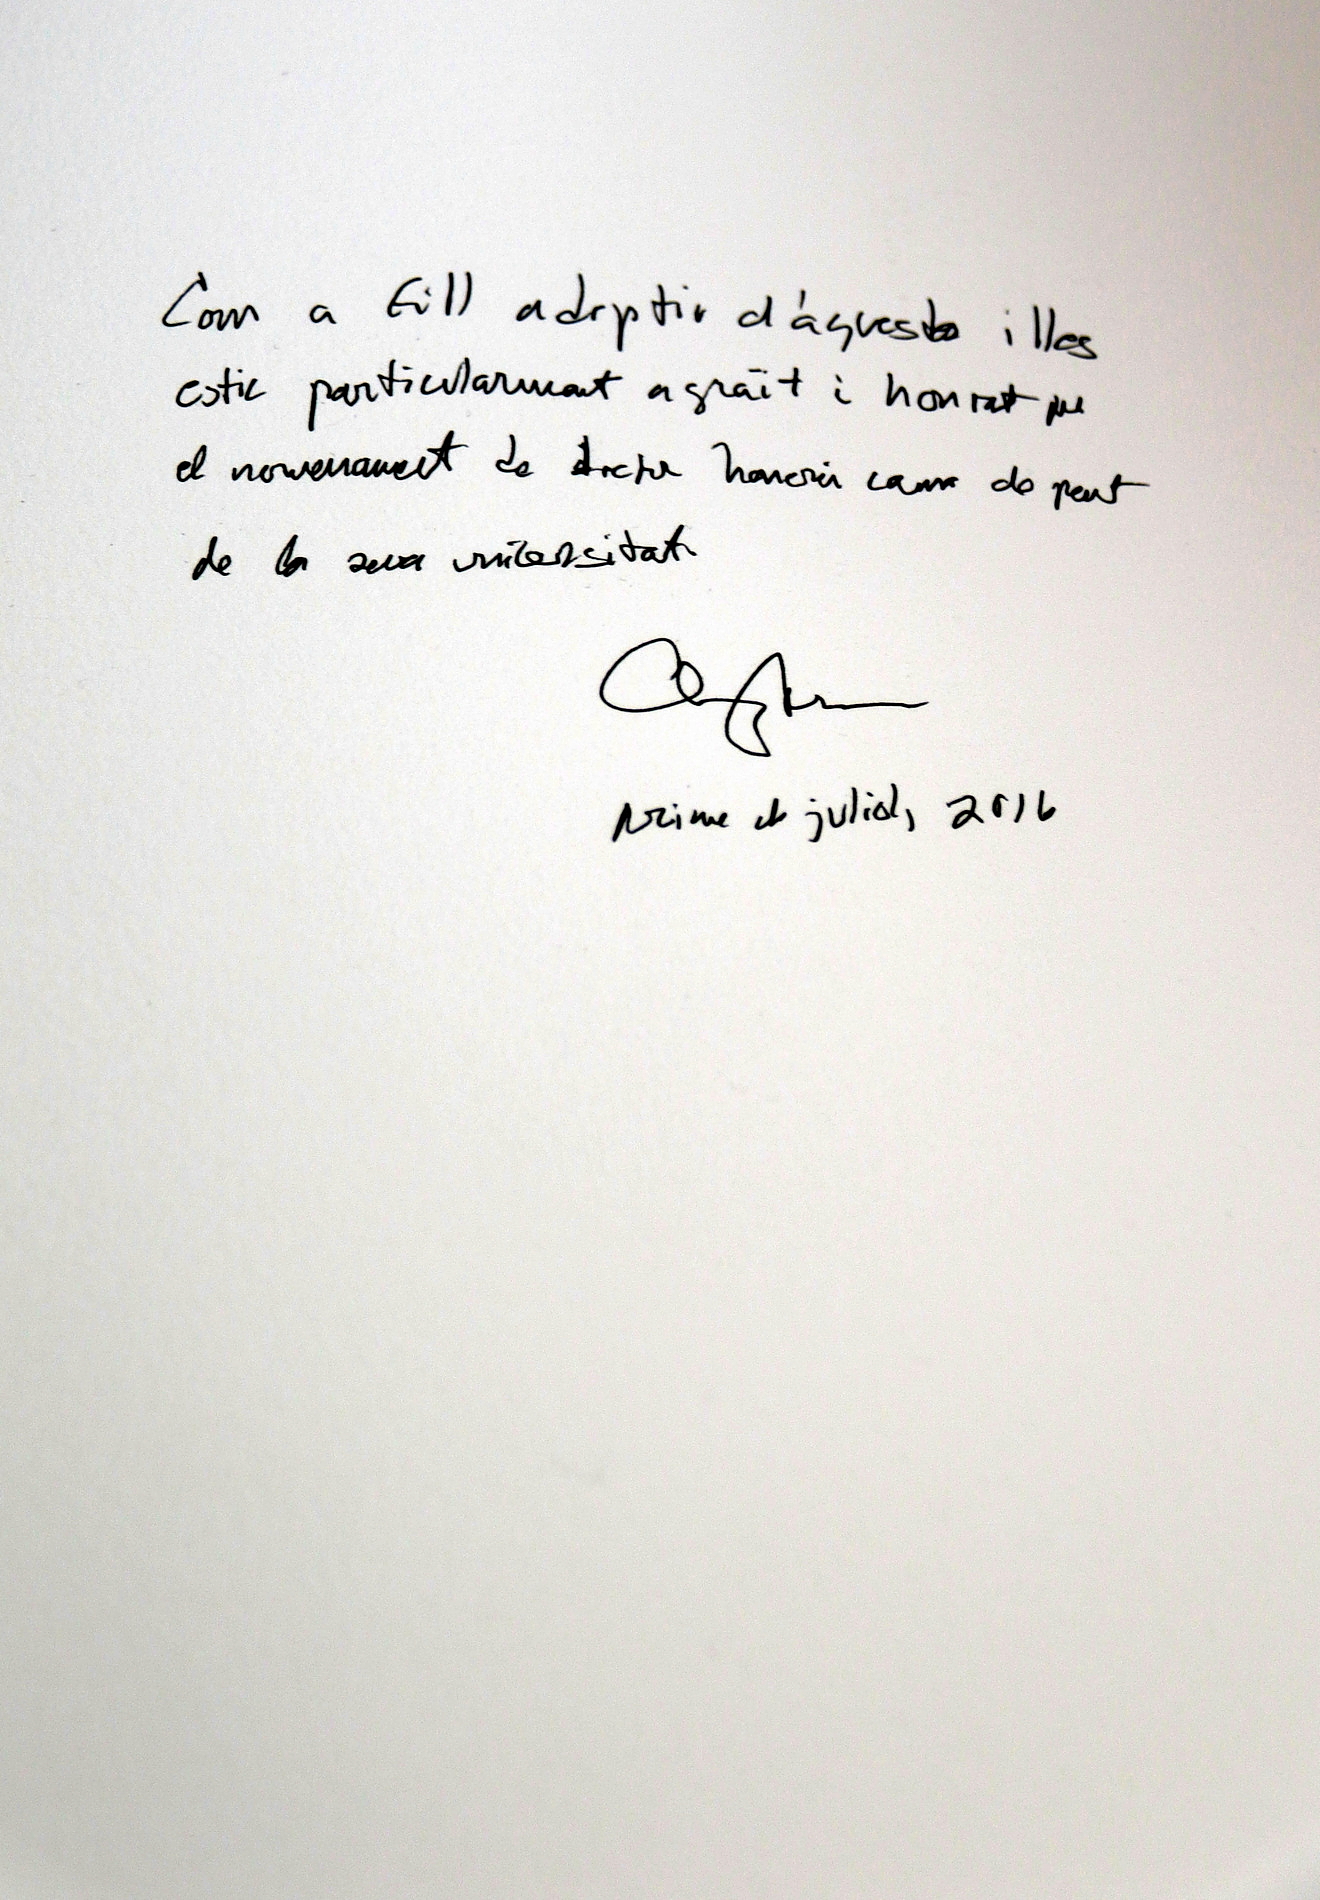 Com a fill adoptiu d'aquestes illes
estic particularment agraït i honrat pel
el nomenament de doctor honoris causa de part
de la seva universitat
de juliol, 2016